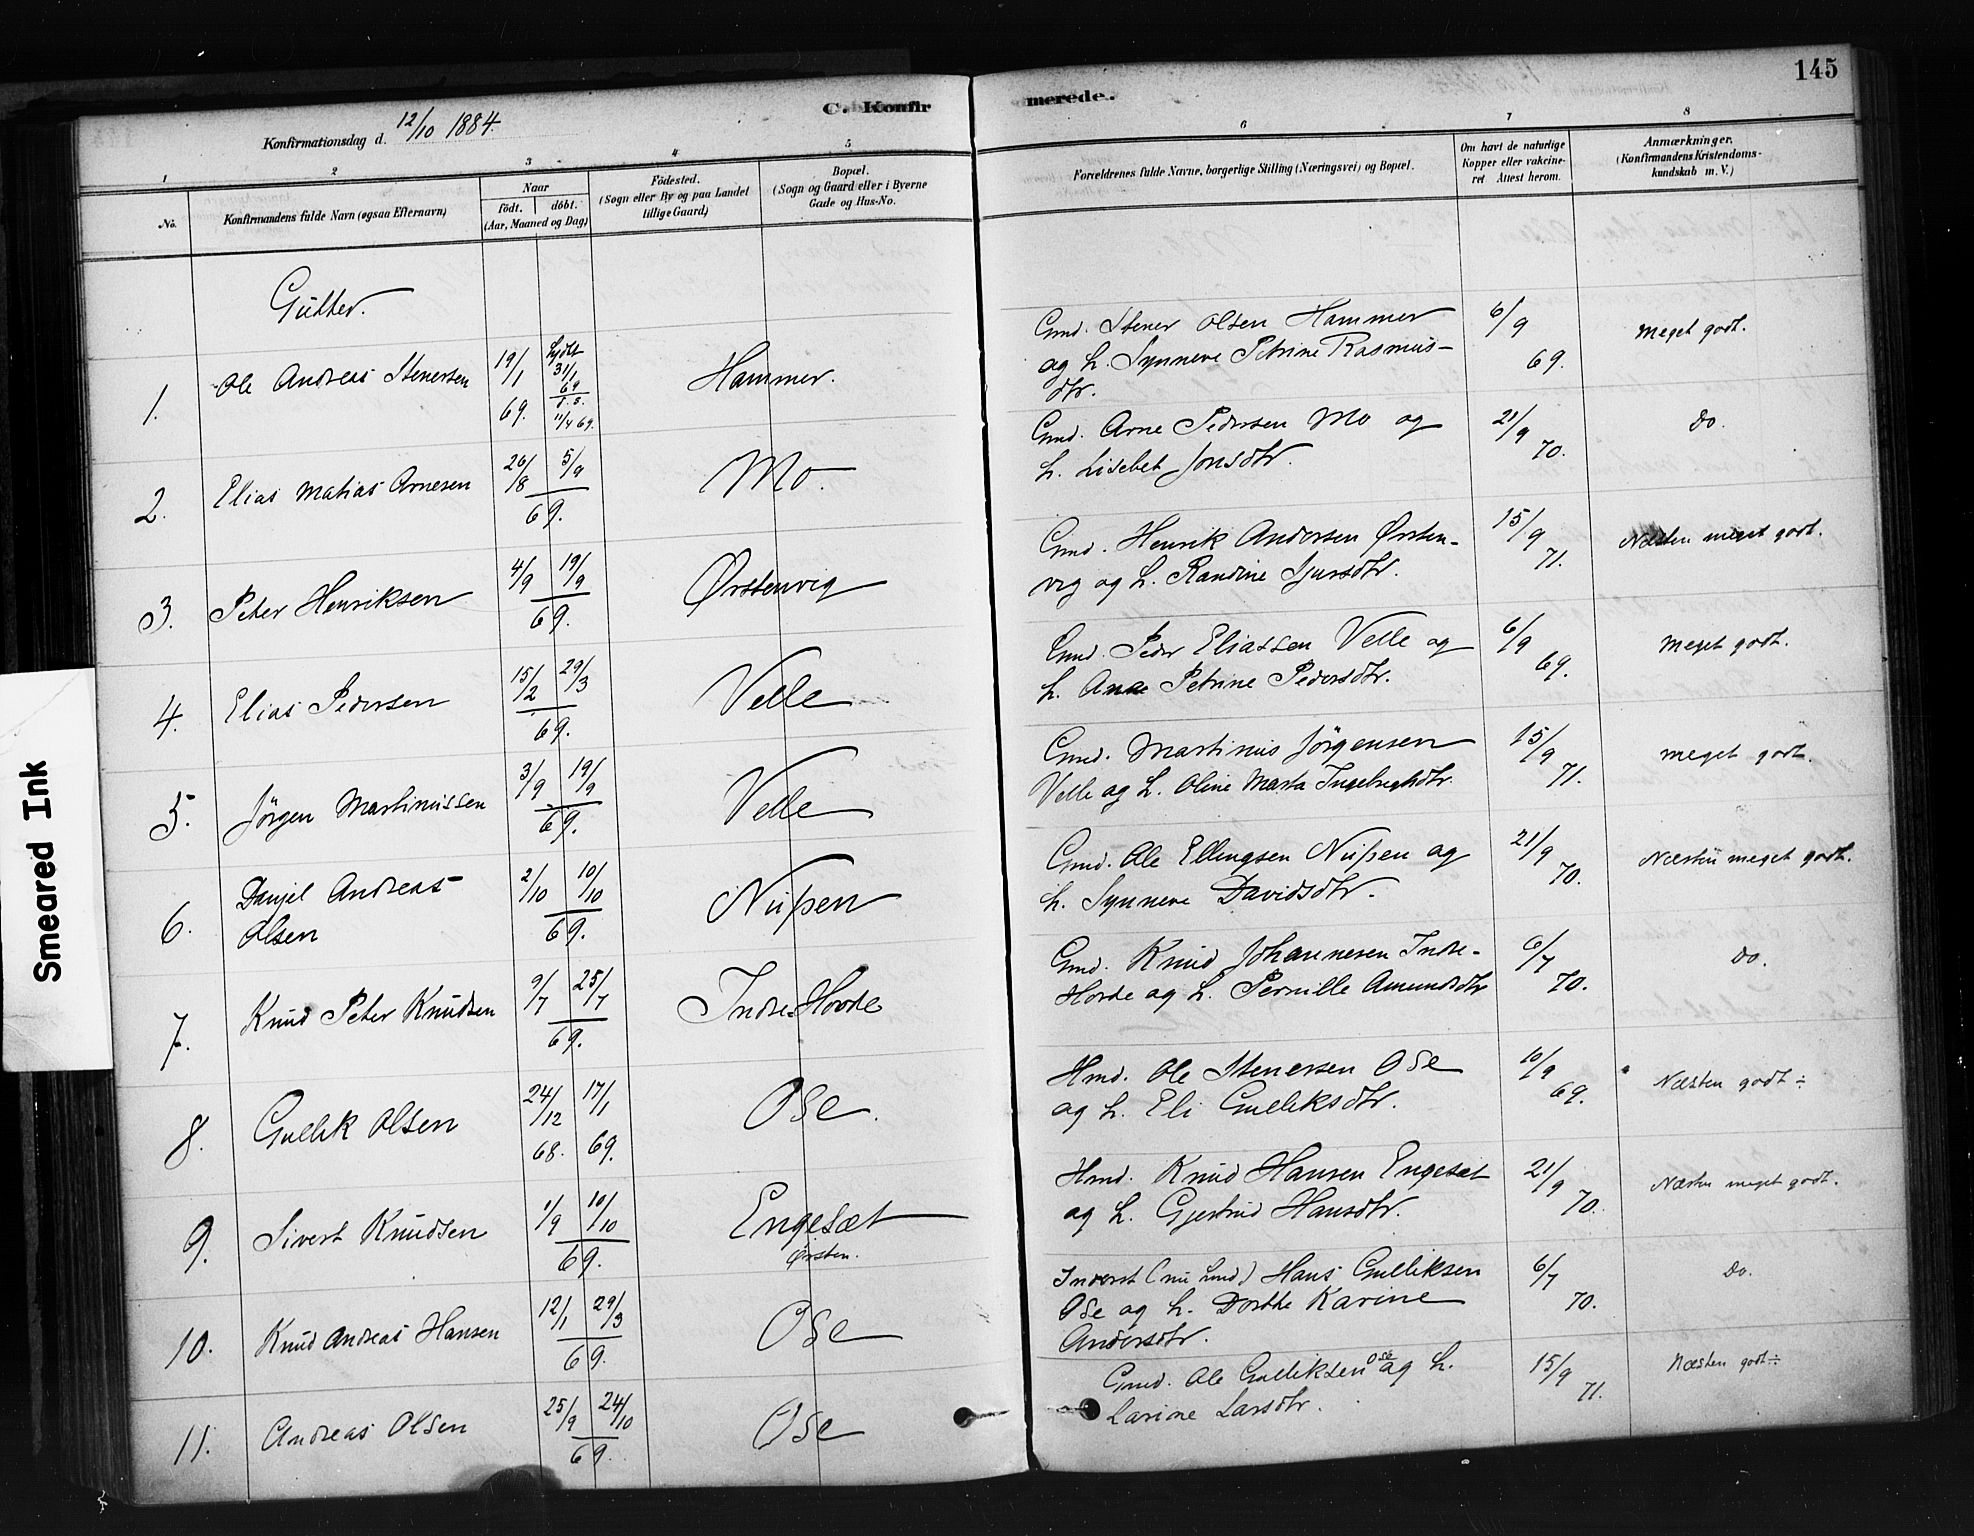 145
C. Konfirmerede.
Konfirmationsdag d. 12/10 1884.
1 2 3 4 5 6 7 8
No.
Konfirmandens fulde Navn (ogsaa Efternavn)
Naar
født. døbt.
(Aar, Maaned og Dag)
Fødested.
(Sogn eller By og paa Landet
tillige Gaard)
Bopæl.
(Sogn og Gaard eller i Byerne
Gade og Hus-No.
Forældrenes fulde Navne, borgerlige Stilling (Næringsvei) og Bopæl.
Om havt de naturlige
Kopper eller vakcine-
ret Attest herom.
Anmærkninger.
(Konfirmandens Kristendoms-
kundskab m. V.)
Gutter.
1. Ole Andreas Stenersen 19/1 69. hjdbt 31/1 69 11/4 69. Hammer.
Gmd. Stener Olsen Hammer
og h. Synneve Petrine Rasmus-
dtr.
6/9 69. Meget godt.
2. Elias Matias Arnesen 26/8 5/9 69. Mo.
Gmd. Arne Pedersen Mo og
h. Lisebet Jonsdtr.
21/9 70. Do.
3. Peter Henriksen 4/9 19/9 69. Ørstenvig
Gmd. Henrik Andersen Ørsten-
vig og h. Randine Sjursdtr.
15/9 71. Næsten meget godt.
4. Elias Pedersen 15/2 29/3 69. Velle
Gmd. Peder Eliassen Velle og
h. Ane Petrine Pedersdtr.
6/9 69. Meget godt.
5. Jørgen Martinussen 3/9 19/9 69. Velle
Gmd. Martinus Jørgensen
Velle og h. Oline Marta Ingebrigtsdtr.
15/9 71. meget godt.
6. Danjel Andreas
Olsen 2/10 10/10 69. Nupen
Gmd. Ole Ellingsen Nupen og
h. Synneve Davidsdtr.
21/9 70. Næsten meget godt.
7. Knud Peter Knudsen 9/7 25/7 69. Indre-Hovde
Gmd. Knud Johannesen Indre-
Hovde og h. Pernille Amundsdtr
6/7 70. Do.
8. Gullik Olsen 24/12 68. 17/1 69. Ose.
Hmd. Ole Stenersen Ose
og h. Eli Gulliksdtr.
10/9 69. Næsten godt ÷
9. Sivert Knudsen 1/9 10/10 69. Engesæt
Ørsten.
Hmd. Knud Hansen Engesæt
og h. Gjertrud Hansdtr.
21/9 70. Næsten meget godt.
10. Knud Andreas Hansen 12/1 29/3 69. Ose
Inderst (nu Hmd) Hans Gulliksen
Ose og h. Dorthe Karine
Andersdtr.
6/7 70. Do.
11. Andreas Olsen 25/9 24/10 69. Ose
Gmd. Ole Gulliksen Ose og h.
Larine Larsdtr.
15/9 71. Næsten godt ÷
Smeared Ink